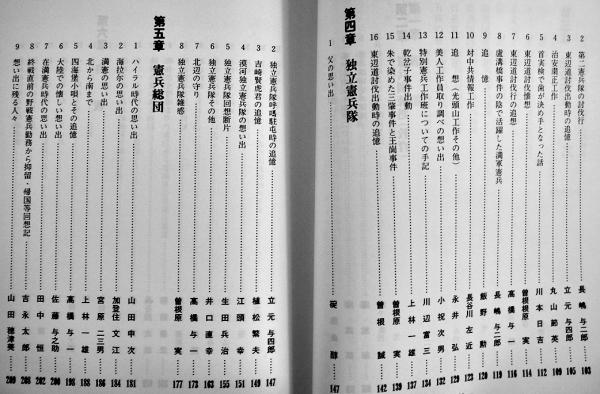 2 第二憲兵隊の討伐行 長嶋 与二郎 103
3 東辺道討伐出動時の追憶 立元 与四郎 105
4 治安粛正工作 丸山 節英 109
5 首実検で歯が決め手となった話 川本 日吉 112
6 東辺道討伐懐想 曽根原 実 114
7 東辺道討伐行の追想 高橋 与一 116
8 盧溝橋事件の陰で活躍した満軍憲兵 長嶋 与二郎 119
9 追憶 飯野 勲 120
10 対中共情報工作 長谷川 左近 123
11 追想(老頭山工作その他) 永井 弘 129
12 美人工作員取り調べの想い出 小祝 次男 132
13 特別憲兵工作班についての手記 川辺 富三 134
14 乾岔子事件出動 上林 一雄 137
15 朱で染めた三肇事件と王崗事件 曽根原 実 139
16 東辺道討伐出動時の追憶 曽根 誠 142
第四章 独立憲兵隊
1 父の思い出 碇 醇 147
2 独立憲兵隊呼嗎駐屯時の追憶 立元 与四郎 147
3 吉崎賢虎君の追憶 植松 繁夫 149
4 漠河独立憲兵の想い出 江頭 幸 151
5 独立憲兵隊回想断片 生田 兵治 155
6 独立憲兵隊その他 井口 直幸 163
7 北辺の守り 高橋 与一 173
8 独立憲兵隊雑感 曽根原 実 177
第五章 憲兵総団
1 ハイラル時代の思い出 山田 申次 181
2 海拉爾の思い出 加登住 文江 184
3 満憲の思い出 宮原 二三男 186
4 北から南まで 上林 一雄 188
5 四海堡小唄とその追憶 高橋 与一 193
6 大陸での懐しい想い出 佐藤 与之助 198
7 在満憲兵時代の思い出 田中 恒 200
8 終戦直前の野戦憲兵勤務から抑留・帰国等回想記 吉永 太郎 206
9 想い出に残る人々 山田 穂津美 209